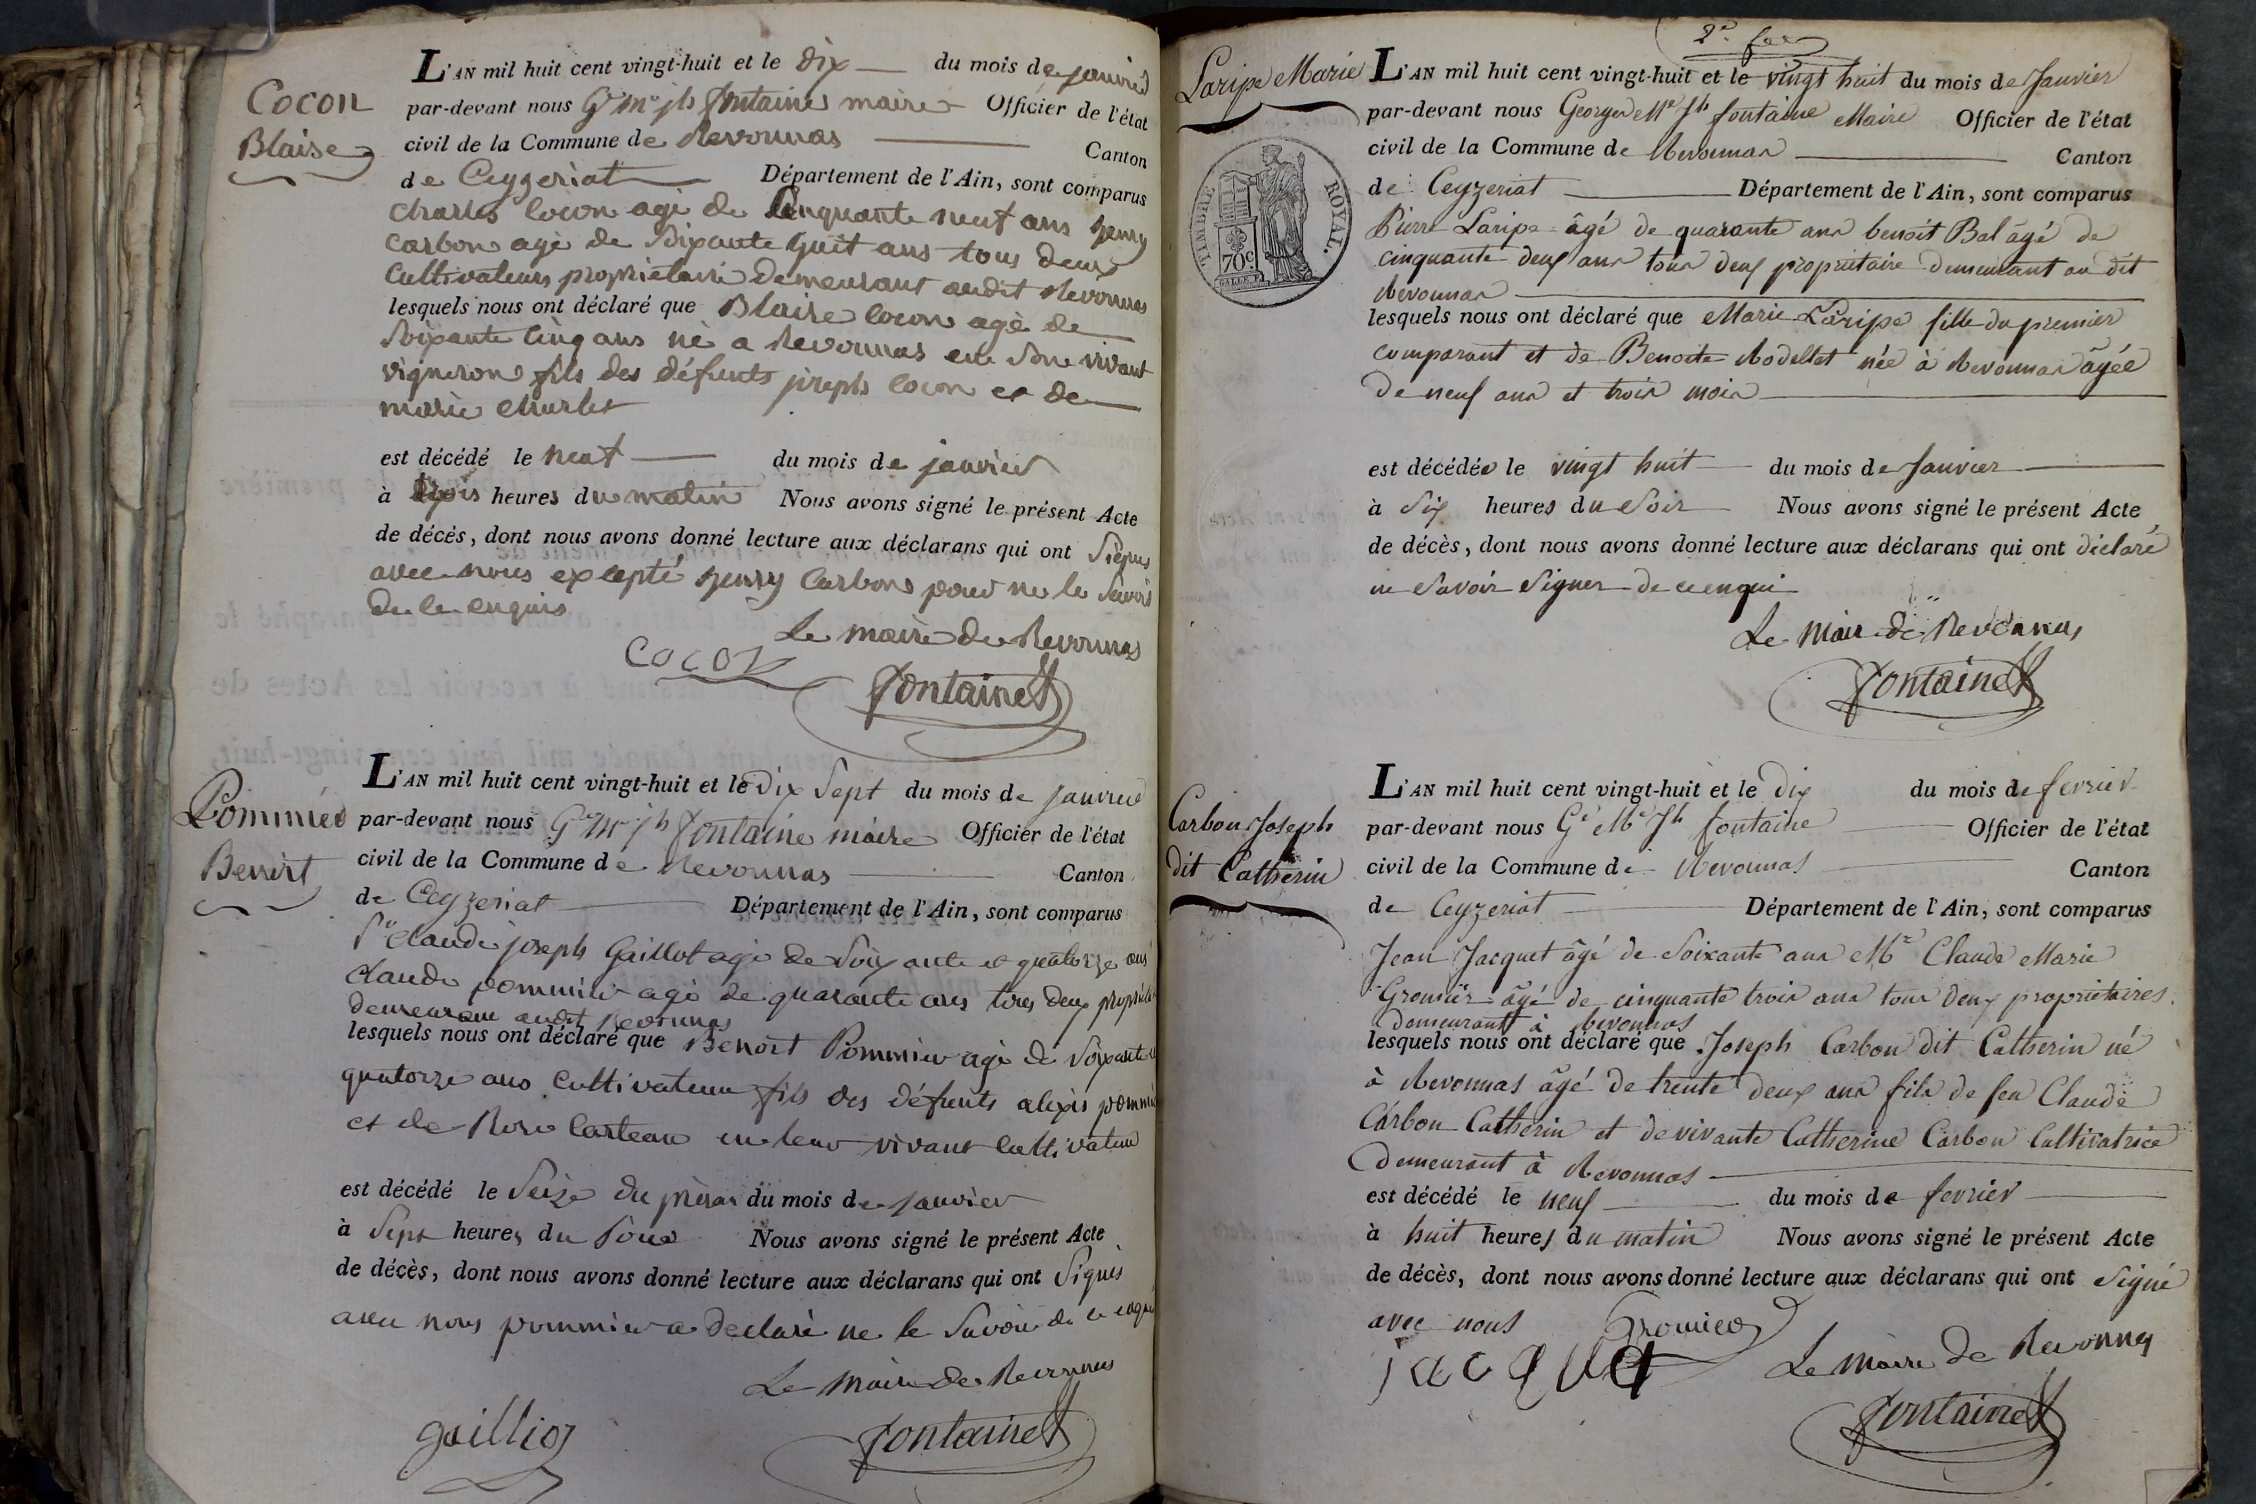 Cocon
Blaise
L'AN mil huit cent vingt-huit et le dix du mois de janvier
par-devant nous Ge Me jh fontaine maire Officier de l'état
civil de la Commune de Revonnas Canton
de Ceyzeriat Département de l'Ain, sont comparus
Charles Cocon agé de Cinquante neuf ans henry
Carbon agé de Soixante huit ans tous deux
Cultivateurs proprietaire demeurant audit Revonnas
lesquels nous ont déclaré que Blaise Cocon agé de
Soixante Cinq ans né a Revonnas en Son vivant
vigneron fils des défunts joseph Cocon et de
marie
est décédé le neuf du mois de janvier
à trois heures du matin Nous avons signé le présent Acte
de décès, dont nous avons donné lecture aux déclarans qui ont Signés
avec nous excepté henry Carbon pour ne le Savoir
de ce enquis
Le maire de Revonnas
COCON
fontaine
Pommier
Benoit
L'AN mil huit cent vingt-huit et le dix Sept du mois de janvier
par-devant nous Ge Me jh fontaine maire Officier de l'état
civil de la Commune de Revonnas Canton
de Ceyzeriat Département de l'Ain, sont comparus
Sr Claude joseph Gaillot agé de Soixante et quatorze ans
Claude pommier agé de quarante ans tous deux propriet
demeurant audit Revonnas
lesquels nous ont déclaré que Benoit Pommier agé de Soixante
quatorze ans Cultivateur fils des défunts alexis pommi
et de Rose en leur vivant Cultivateur
est décédé le Seize du mois de janvier
à Sept heures du Soir Nous avons signé le présent Acte
de décès, dont nous avons donné lecture aux déclarans qui ont Signés
avec nous pommier a declaré ne le Savoir de ce enqui
Le Maire de Revonnas
gaillio
fontaine
2e
Laripe Marie
TIMBRE ROYAL.
70c
L'AN mil huit cent vingt-huit et le vingt huit du mois de Janvier
par-devant nous George Me Jh fontaine Maire Officier de l'état
civil de la Commune de Revonnas Canton
de Ceyzeriat Département de l'Ain, sont comparus
Pierre Laripe âgé de quarante ans benoit Bal âgé de
cinquante deux ans tous deux propriétaire demeurant au dit
Revonnas
lesquels nous ont déclaré que Marie Laripe fille du premier
comparant et de Benoite Rodellet née à Revonnas âgée
de neuf ans et trois mois
est décédée le vingt huit du mois de Janvier
à Six heures du Soir Nous avons signé le présent Acte
de décès, dont nous avons donné lecture aux déclarans qui ont déclaré
ne Savoir Signer de ce enqui
Le Maire de Revonnas
fontaine
Carbon Joseph
dit Catherin
L'AN mil huit cent vingt-huit et le dix du mois de fevrier
par-devant nous Ge Me Jh fontaine Officier de l'état
civil de la Commune de Revonnas Canton
de Ceyzeriat Département de l'Ain, sont comparus
Jean Jacquet âgé de Soixante ans Mr Claude Marie
Gromier âgé de cinquante trois ans tous deux propriétaires
demeurant à Revonnas
lesquels nous ont déclaré que Joseph Carbon dit Catherin né
à Revonnas âgé de trente deux ans fils de feu Claude
Carbon Catherin et de vivante Catherine Carbon Cultivatrice
demeurant à Revonnas
est décédé le neuf du mois de fevrier
à huit heures du matin Nous avons signé le présent Acte
de décès, dont nous avons donné lecture aux déclarans qui ont Signé
avec nous Gromier
jacquet
Le Maire de Revonnas
fontaine